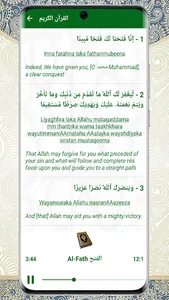 القرآن الكريم
1 - إِنَّا فَتَحْنَا لَكَ فَتْحًا مُّبِينًا
Inna fatahna laka fathanmubeena
Indeed, We have given you, [O Muhammad],
a clear conquest
2 - لِّيَغْفِرَ لَكَ ٱللَّهُ مَا تَقَدَّمَ مِن ذَنۢبِكَ وَمَا تَأَخَّرَ
وَيُتِمَّ نِعْمَتَهُۥ عَلَيْكَ وَيَهْدِيَكَ صِرَٰطًا مُّسْتَقِيمًا
Liyaghfira laka Allahu mataqaddama
min thanbika wama taakhkhara
wayutimmaniAAmatahu AAalayka wayahdiyaka
siratan mustaqeema
That Allah may forgive for you what preceded of
your sin and what will follow and complete His
favor upon you and guide you to a straight path
3 - وَيَنصُرَكَ ٱللَّهُ نَصْرًا عَزِيزًا
Wayansuraka Allahu nasranAAazeeza
And [that] Allah may aid you with a mighty victory.
3:44
Al-Fath الفتح
5:00